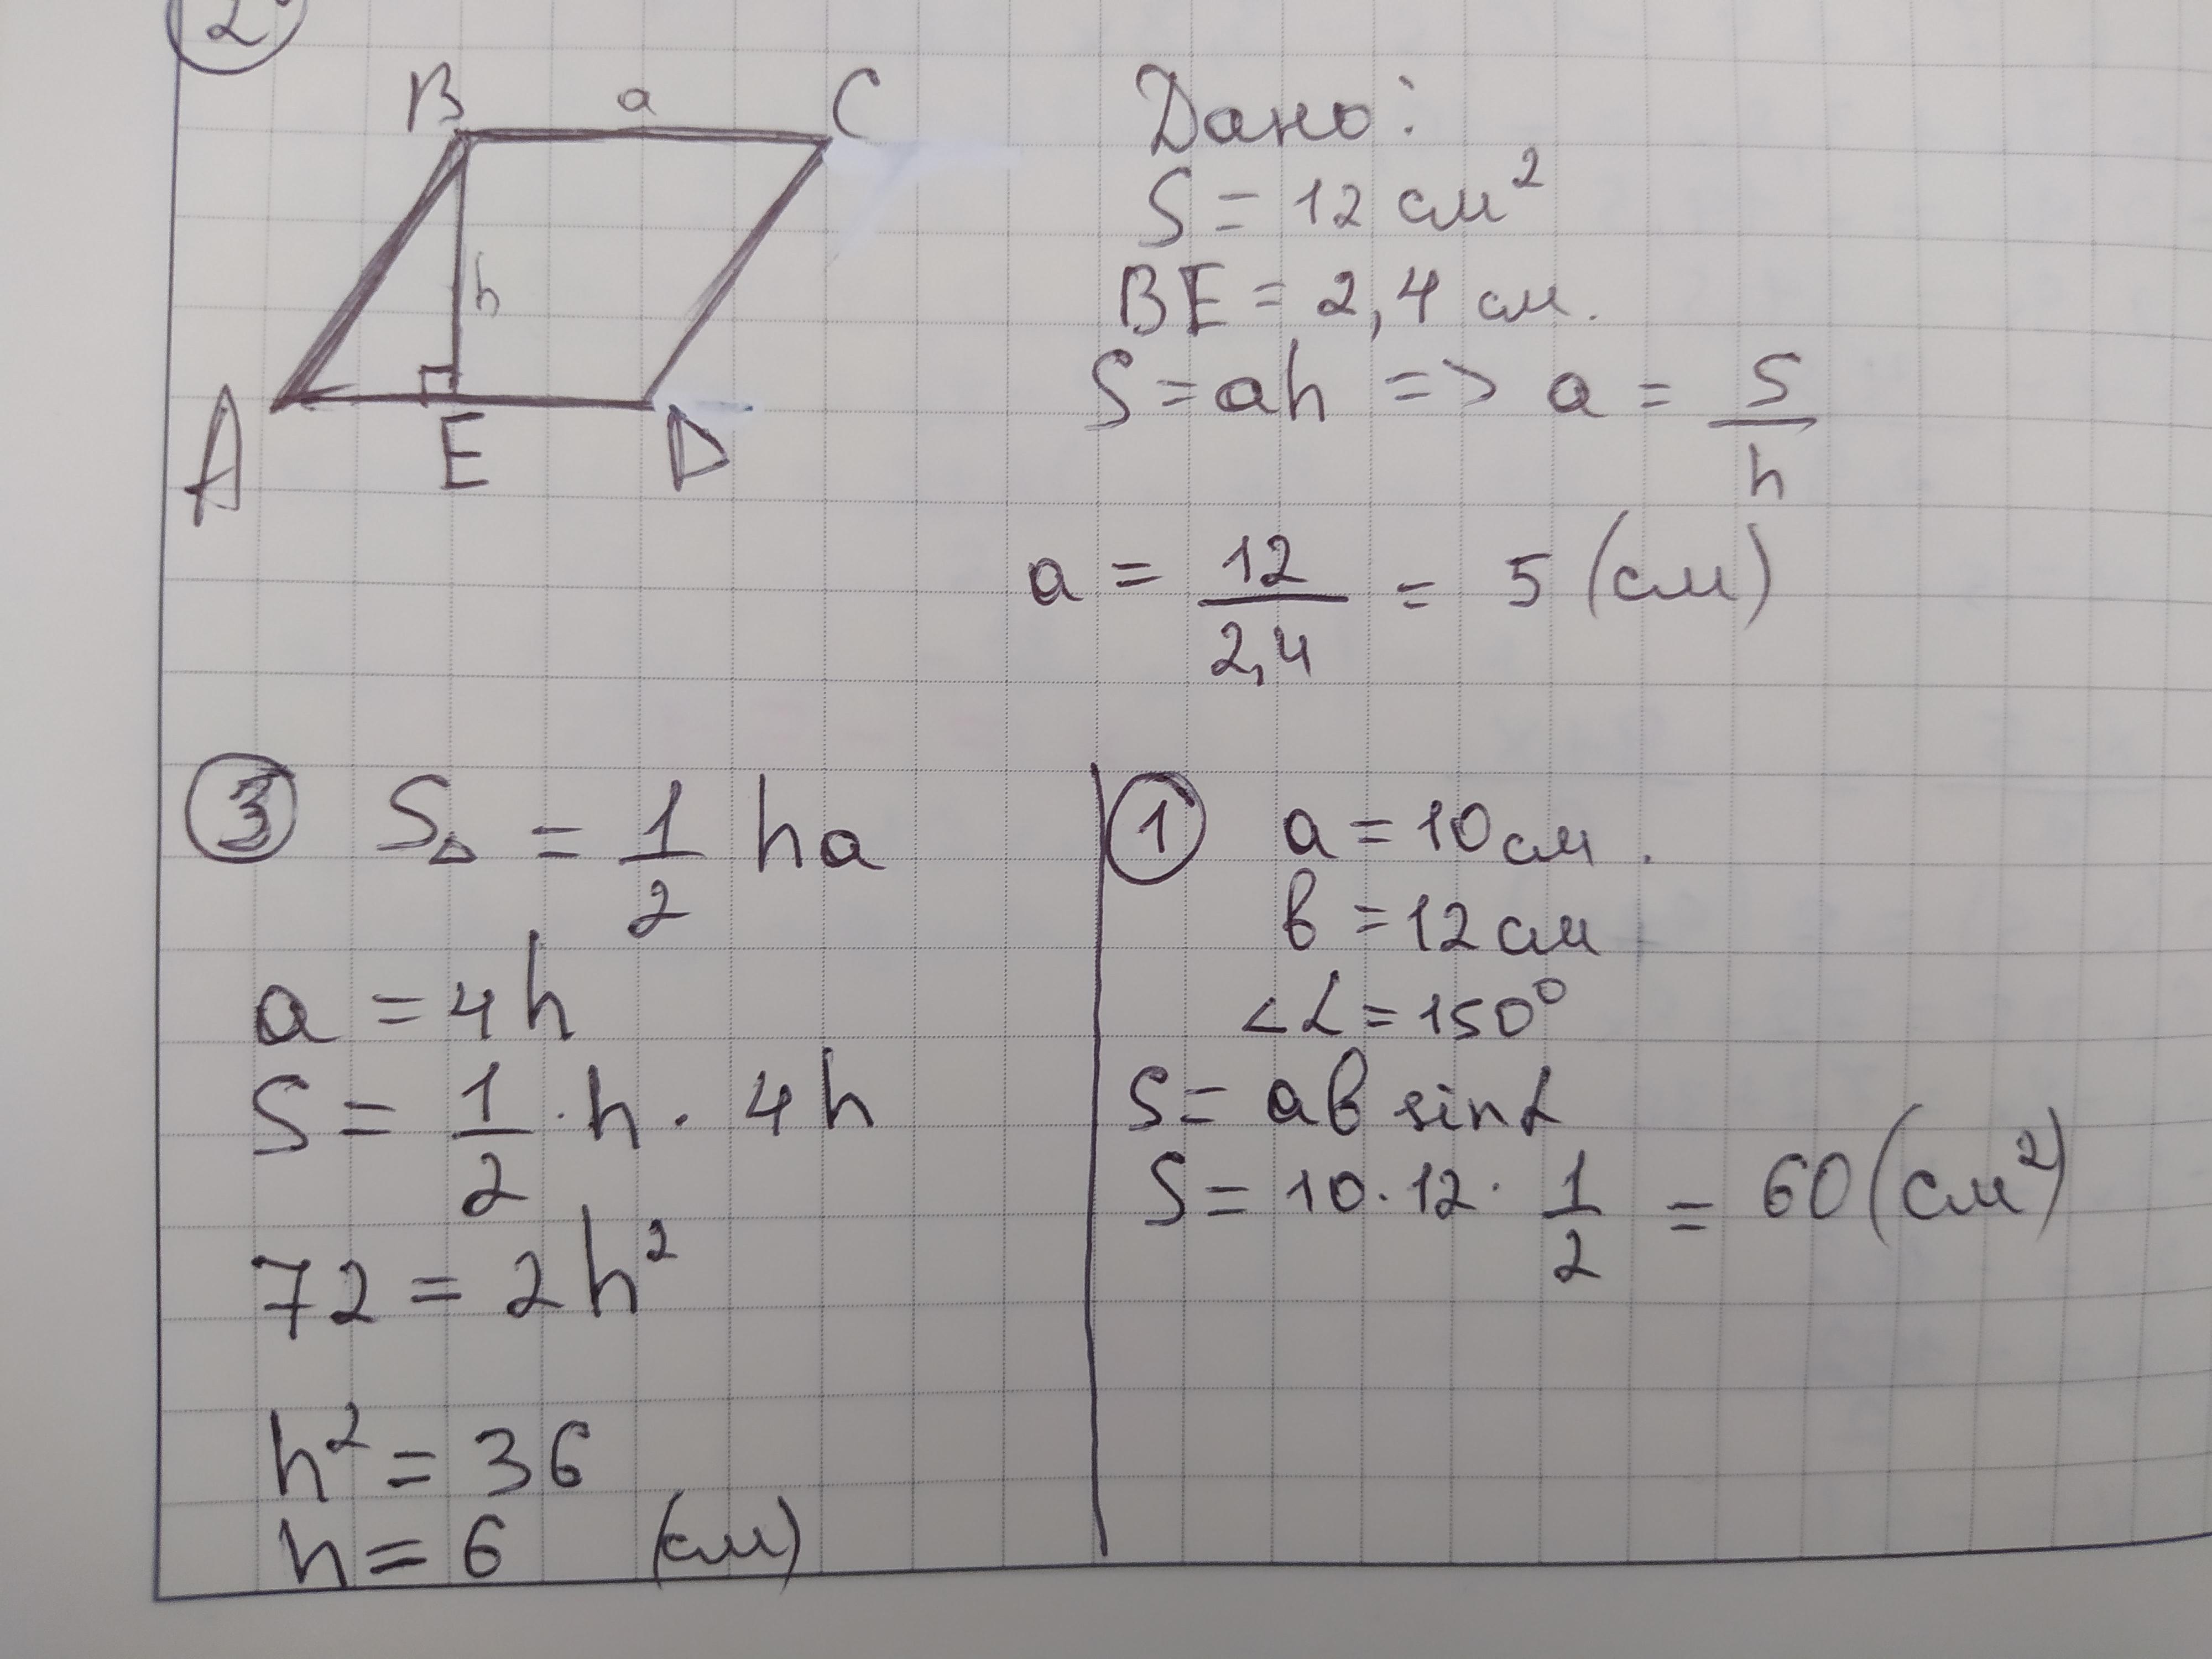 2
B a C
h
A E D
Дано:
S = 12 см²
BE = 2,4 см.
S = ah => a = S/h
a = 12/2,4 = 5 (см)
3 S△ = 1/2 ha
a = 4h
S = 1/2 · h · 4h
72 = 2h²
h² = 36
h = 6 (см)
1 a = 10 см.
в = 12 см
∠α = 150°
S = aв sinα
S = 10 · 12 · 1/2 = 60 (см²)